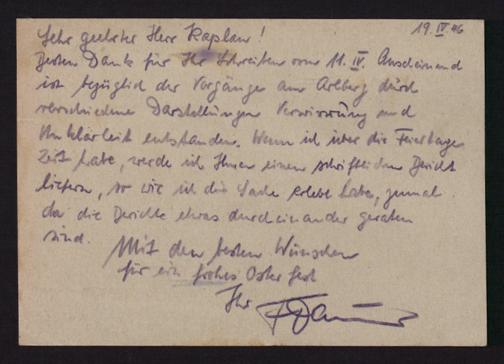 19. IV 46
Sehr geehrter Herr Kaplan!
Besten Dank für Ihr Schreiben vom 11. IV. Anscheinend
ist bezüglich der Vorgänge am Arlberg durch
verschiedene Darstellungen Verwirrung und
Unklarheit entstanden. Wenn ich über die Feiertage
Zeit habe, werde ich Ihnen einen schriftlichen Bericht
liefern, so wie ich die Sache erlebt habe, zumal
da die Berichte etwas durcheinander geraten
sind.
Mit den besten Wünschen
für ein frohes Osterfest
Ihr